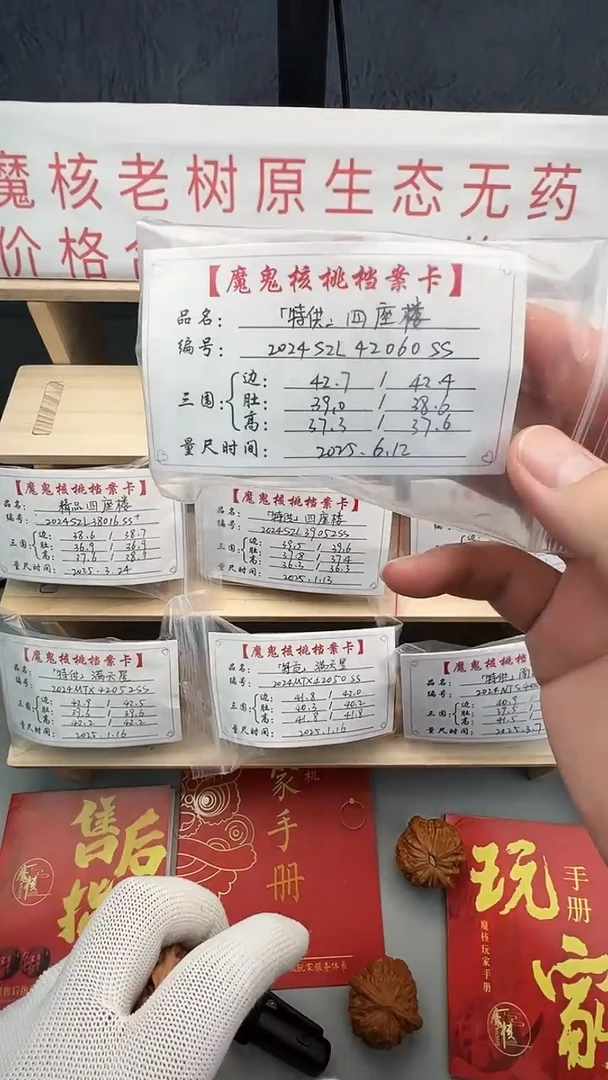 魔核老树原生态无药
价格
【魔鬼核桃档案卡】
品名：「特供」四座楼
编号：2024SZL42060SS
三围：
边：42.7 / 42.4
肚：39.0 / 38.6
高：37.3 / 37.6
量尺时间：2025.6.12
【魔鬼核桃档案卡】
品名：精品四座楼
编号：2024SZL38016SS+
三围：
边：38.6 / 38.7
肚：36.9 / 36.4
高：37.6 / 38.9
量尺时间：2025.3.24
【魔鬼核桃档案卡】
品名：「特供」四座楼
编号：2024SZL39052SS
三围：
边：39.5 / 39.6
肚：37.8 / 37.4
高：36.3 / 36.3
量尺时间：2025.1.13
【魔鬼核桃档案卡】
品名：「特供」满天星
编号：2024MTX42052SS
三围：
边：42.9 / 42.5
肚：39.2 / 39.6
高：42.2 / 42.2
量尺时间：2025.1.16
【魔鬼核桃档案卡】
品名：「特贡」满天星
编号：2024MTX42050SS
三围：
边：41.8 / 42.0
肚：40.3 / 40.2
高：41.8 / 41.8
量尺时间：2025.1.16
【魔鬼核桃
品名：「特供」
编号：
三围：
边：40.9
肚：39.5
高：41.5
量尺时间：2025.3.7
售后
家手册
玩家服务体系
玩家
手册
魔核玩家手册
魔核